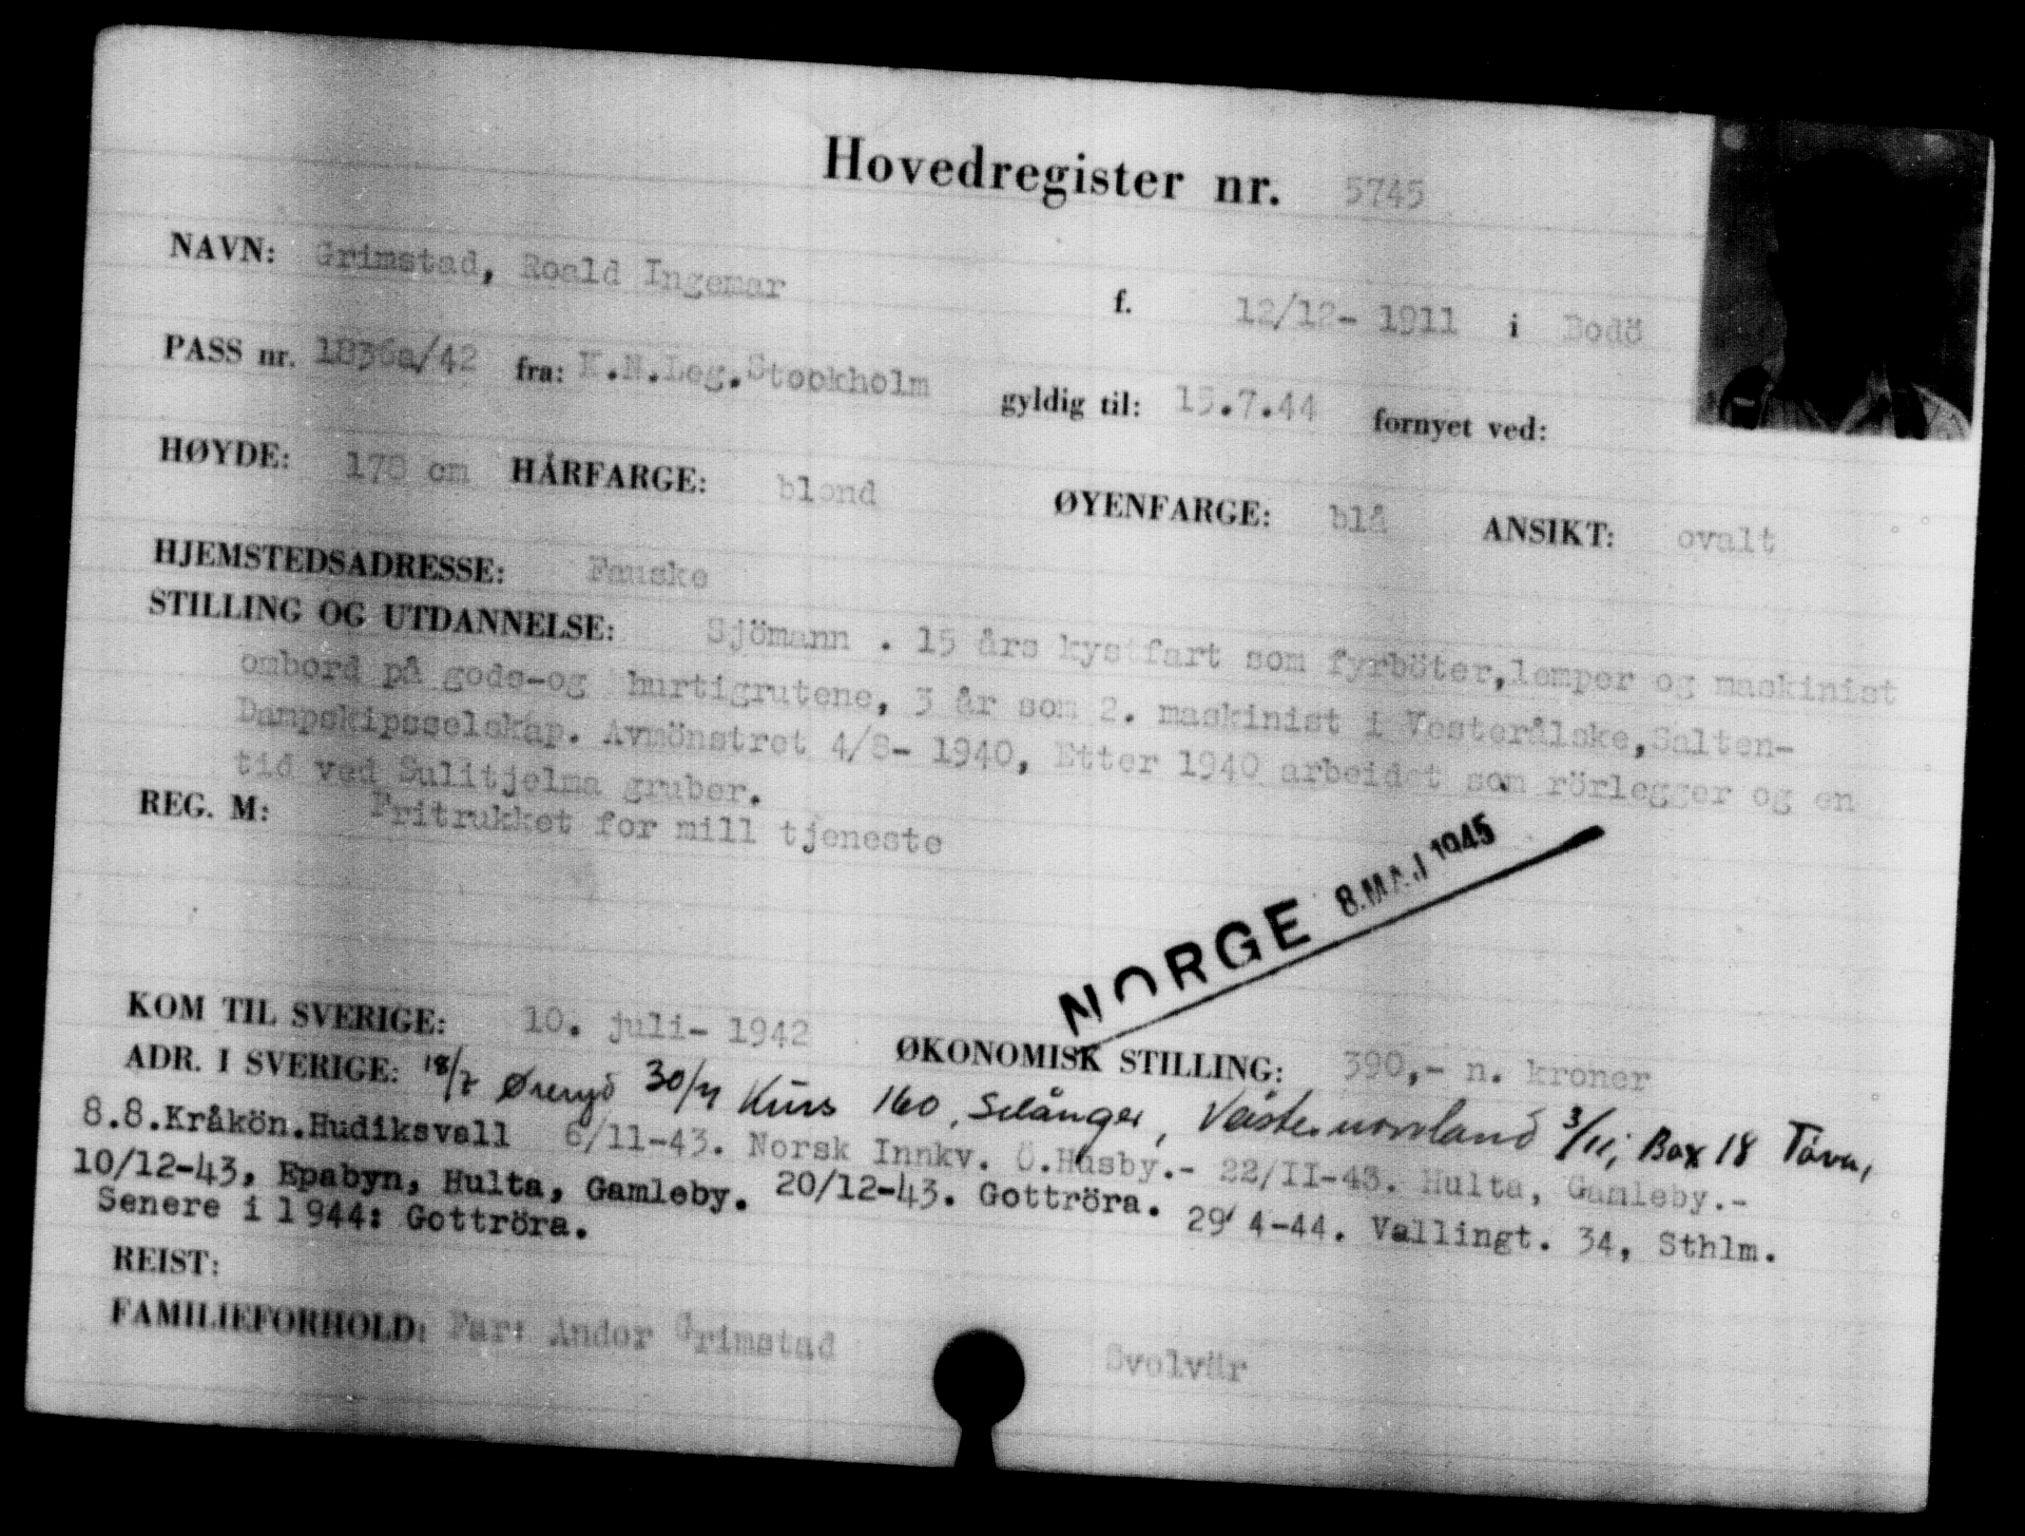 Hovedregister nr. 5745
NAVN: Grimstad, Roald Ingemar f. 12/12- 1911 i Bodö
PASS nr. 1836a/42 fra: K.N.Leg.Stockholm gyldig til: 15.7.44 fornyet ved:
HØYDE: 178 cm HÅRFARGE: blond ØYENFARGE: blå ANSIKT: ovalt
HJEMSTEDSADRESSE: Fauske
STILLING OG UTDANNELSE: Sjömann . 15 års kystfart som fyrböter,lemper og maskinist
ombord på gods-og hurtigrutene, 3 år som 2. maskinist i Vesterålske,Salten-
Dampskipsselskap. Avmönstret 4/8- 1940, Etter 1940 arbeidet som rörlegger og en
tid ved Sulitjelma gruber.
REG. M: Fritrukket for mill tjeneste
NORGE 8.MAJ 1945
KOM TIL SVERIGE: 10. juli- 1942 ØKONOMISK STILLING: 390,- n. kroner
ADR. I SVERIGE: 18/7 Øreryd 30/7 Kurs 160, Selånger, Västernorrland 3/11; Box 18 Töva,
8.8.Kråkön.Hudiksvall 6/11-43. Norsk Innkv. Ö.Husby.- 22/II-43. Hulta, Gamleby.-
10/12-43, Epabyn, Hulta, Gamleby. 20/12-43. Gottröra. 29/4-44. Vallingt. 34, Sthlm.
Senere i 1944: Gottröra.
REIST:
FAMILIEFORHOLD: Far: Andor Grimstad Svolvär